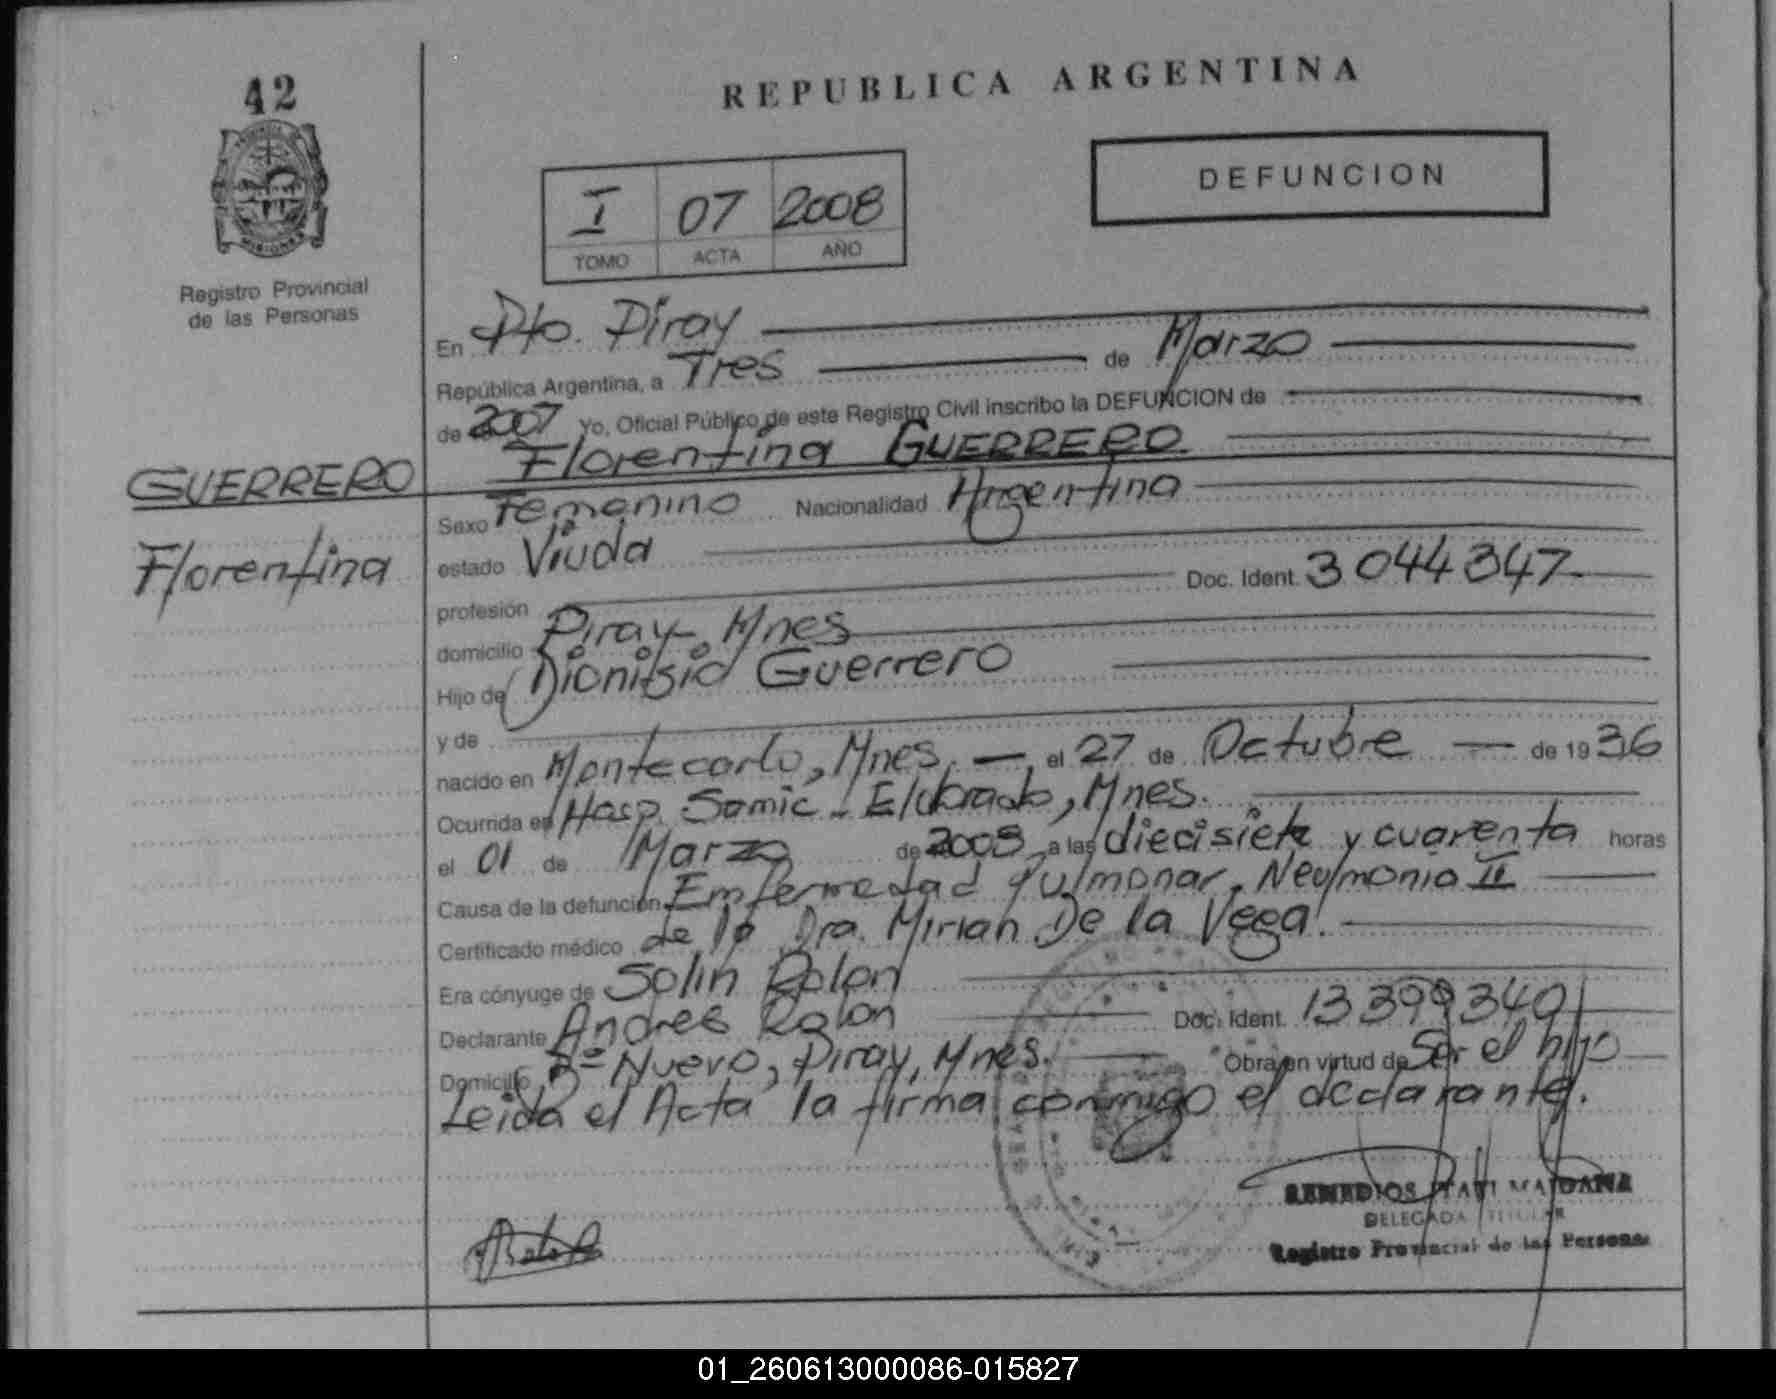 42
REPUBLICA ARGENTINA
DEFUNCION
I 07 2008
TOMO ACTA AÑO
Registro Provincial
de las Personas
En Pto. Piray
República Argentina, a Tres de Marzo
de 2007 Yo, Oficial Público de este Registro Civil inscribo la DEFUNCION de
Florentina GUERRERO
GUERRERO
Florentina
Sexo Femenino Nacionalidad Argentina
estado Viuda
profesión Doc. Ident. 3044347
domicilio Piray, Mnes
Hijo de Dionisio Guerrero
y de
nacido en Montecarlo, Mnes. el 27 de Octubre de 1936
Ocurrida en Hosp. Samic - Eldorado, Mnes.
el 01 de Marzo de 2008 a las diecisiete y cuarenta horas
Causa de la defunción Enfermedad pulmonar, Neumonia II
Certificado médico de la Dra. Mirian De la Vega.
Era cónyuge de Solin Rolon
Declarante Andres Rolon Doc. Ident. 13399340
Domicilio Bº Nuevo, Piray, Mnes. Obra en virtud de Ser el hijo
Leida el Acta la firma conmigo el declarante.
REMEDIOS ITATI MAIDANA
DELEGADA TITULAR
Registro Provincial de las Personas
01_260613000086-015827